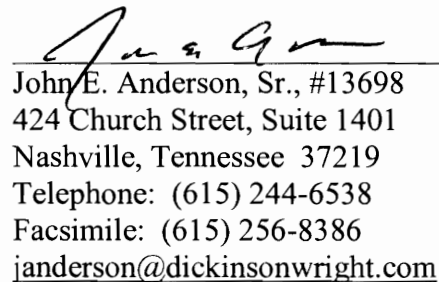 John E. Anderson, Sr., #13698
424 Church Street, Suite 1401
Nashville, Tennessee 37219
Telephone: (615) 244-6538
Facsimile: (615) 256-8386
janderson@dickinsonwright.com